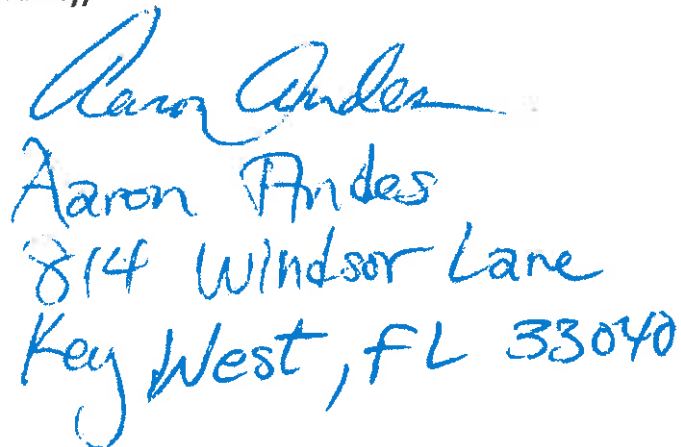 Aaron Andes
Aaron Andes
814 Windsor Lane
Key West, FL 33040